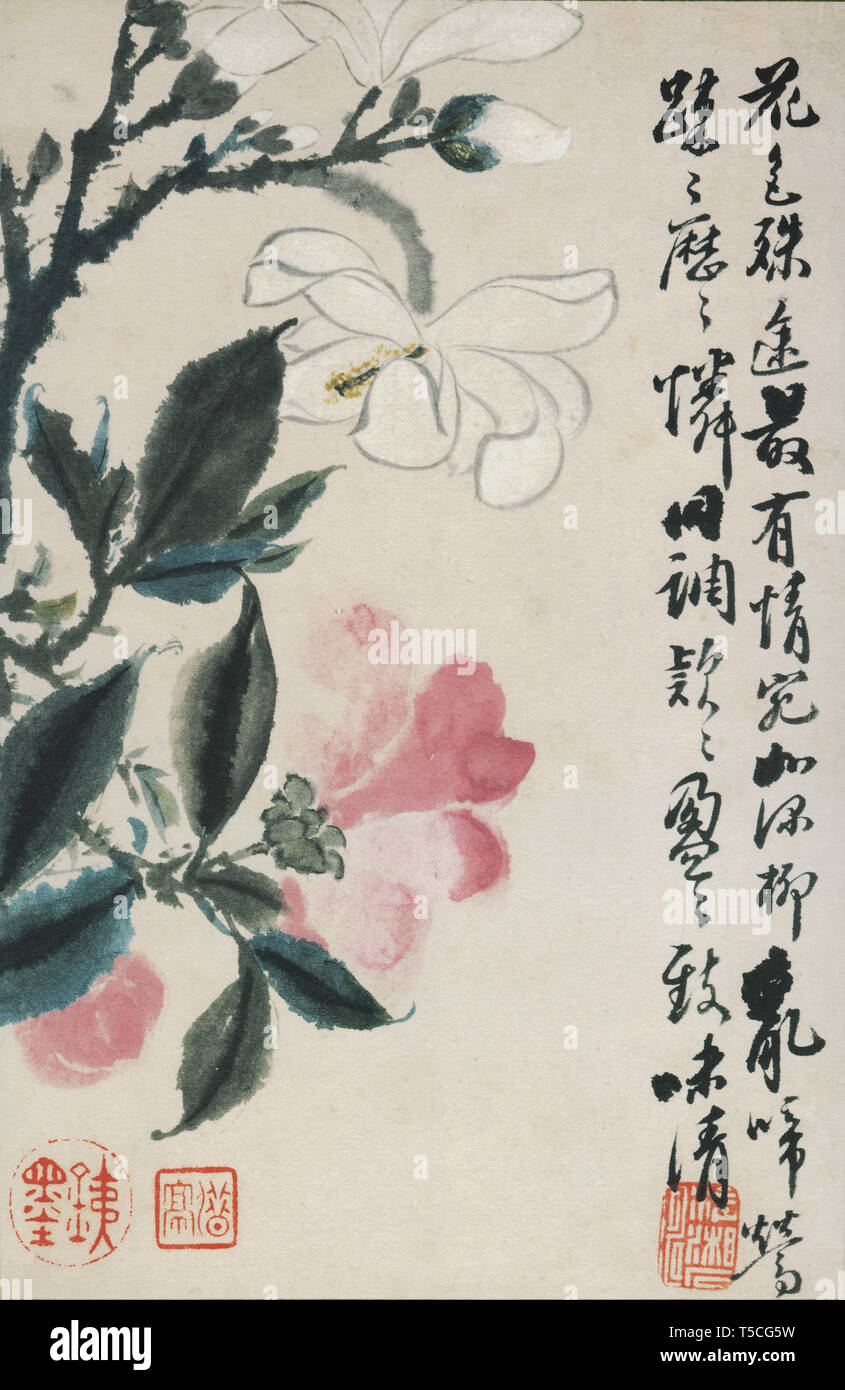 花色殊途最有情宛如深柳亂啼鶯
疎〻歷〻憐同調款〻盈〻致味清
潛
alamy
Image ID: T5CG5W
www.alamy.com